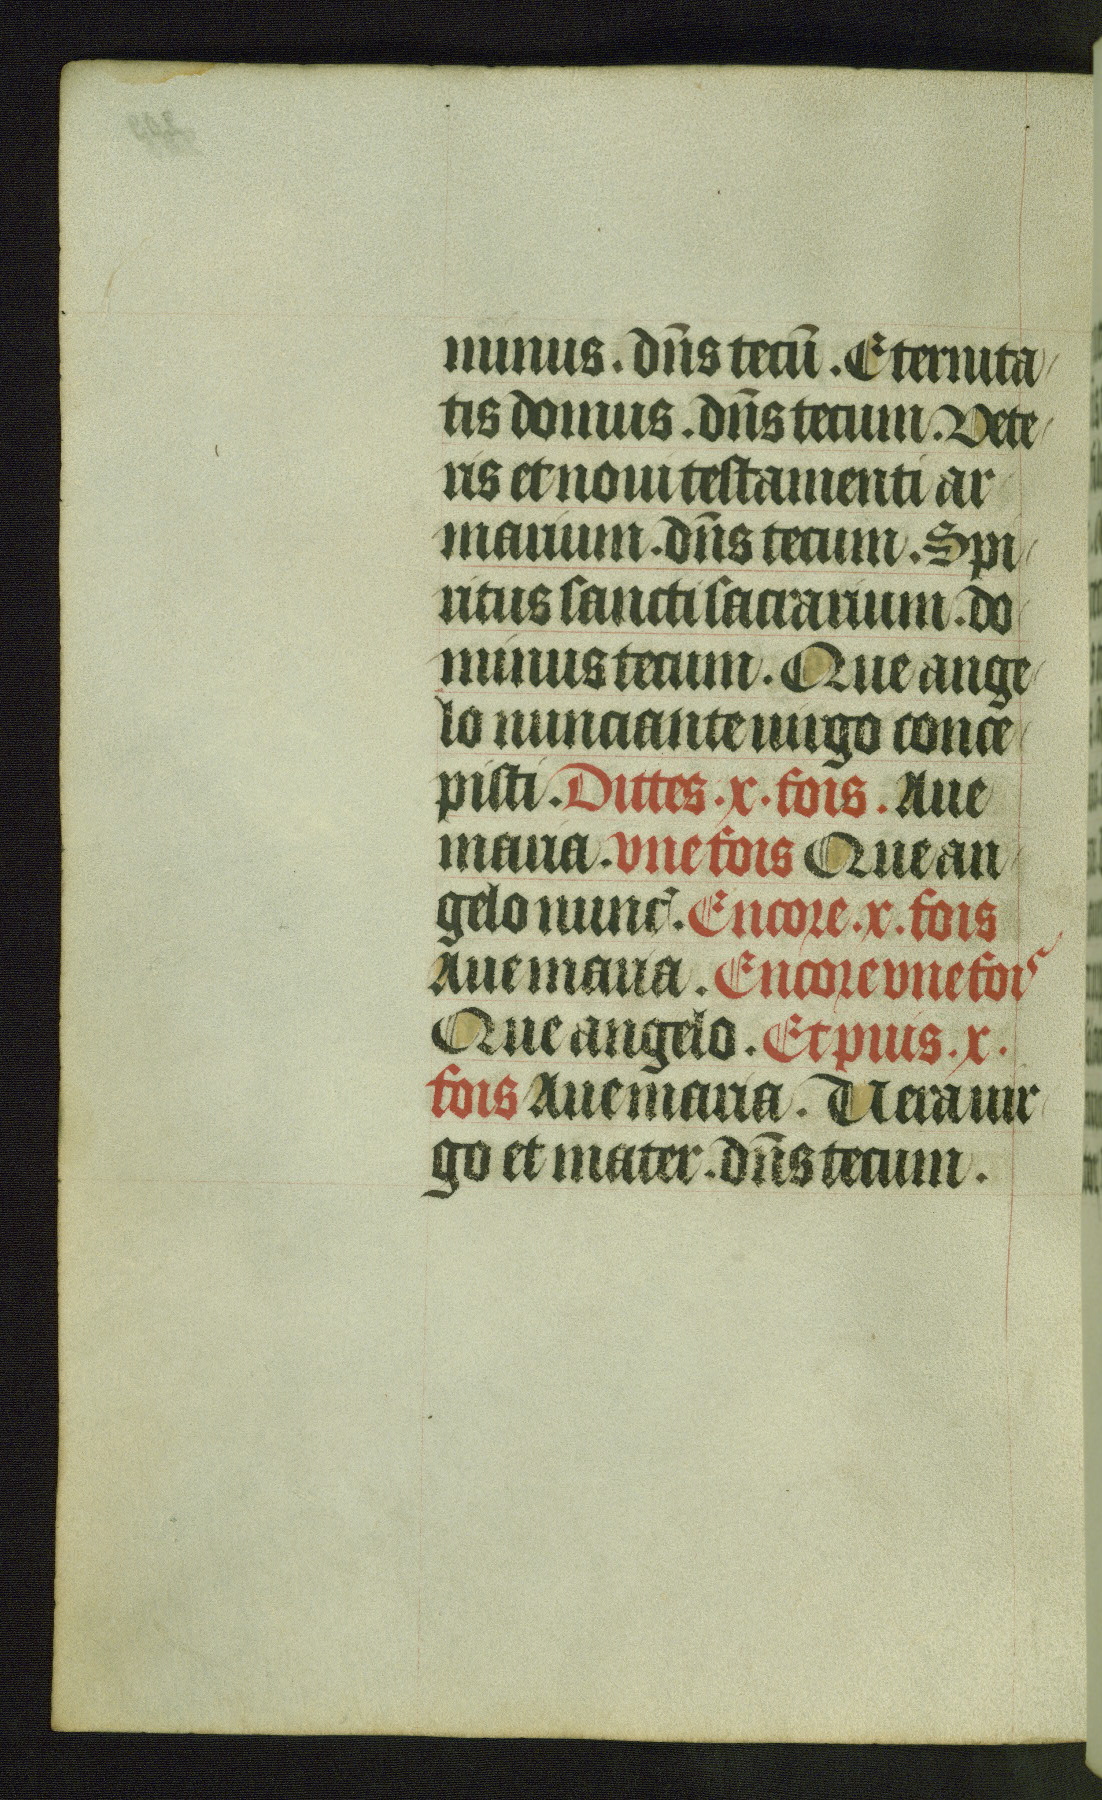 minus. dn̄s tecū. Eternita
tis domus. dn̄s tecum. Vete
ris et noui testamenti ar
marium. dn̄s tecum. Spi
ritus sancti sacrarium. do
minus tecum. Que ange
lo nunciante uirgo conce
pisti. Dittes .x. fois. Aue
maria. vne fois Que an
gelo nunc̄. Encore .x. fois
Aue maria. Encore vne fois
Que angelo. Et puis .x.
fois Aue maria. Uera uir
go et mater. dn̄s tecum.